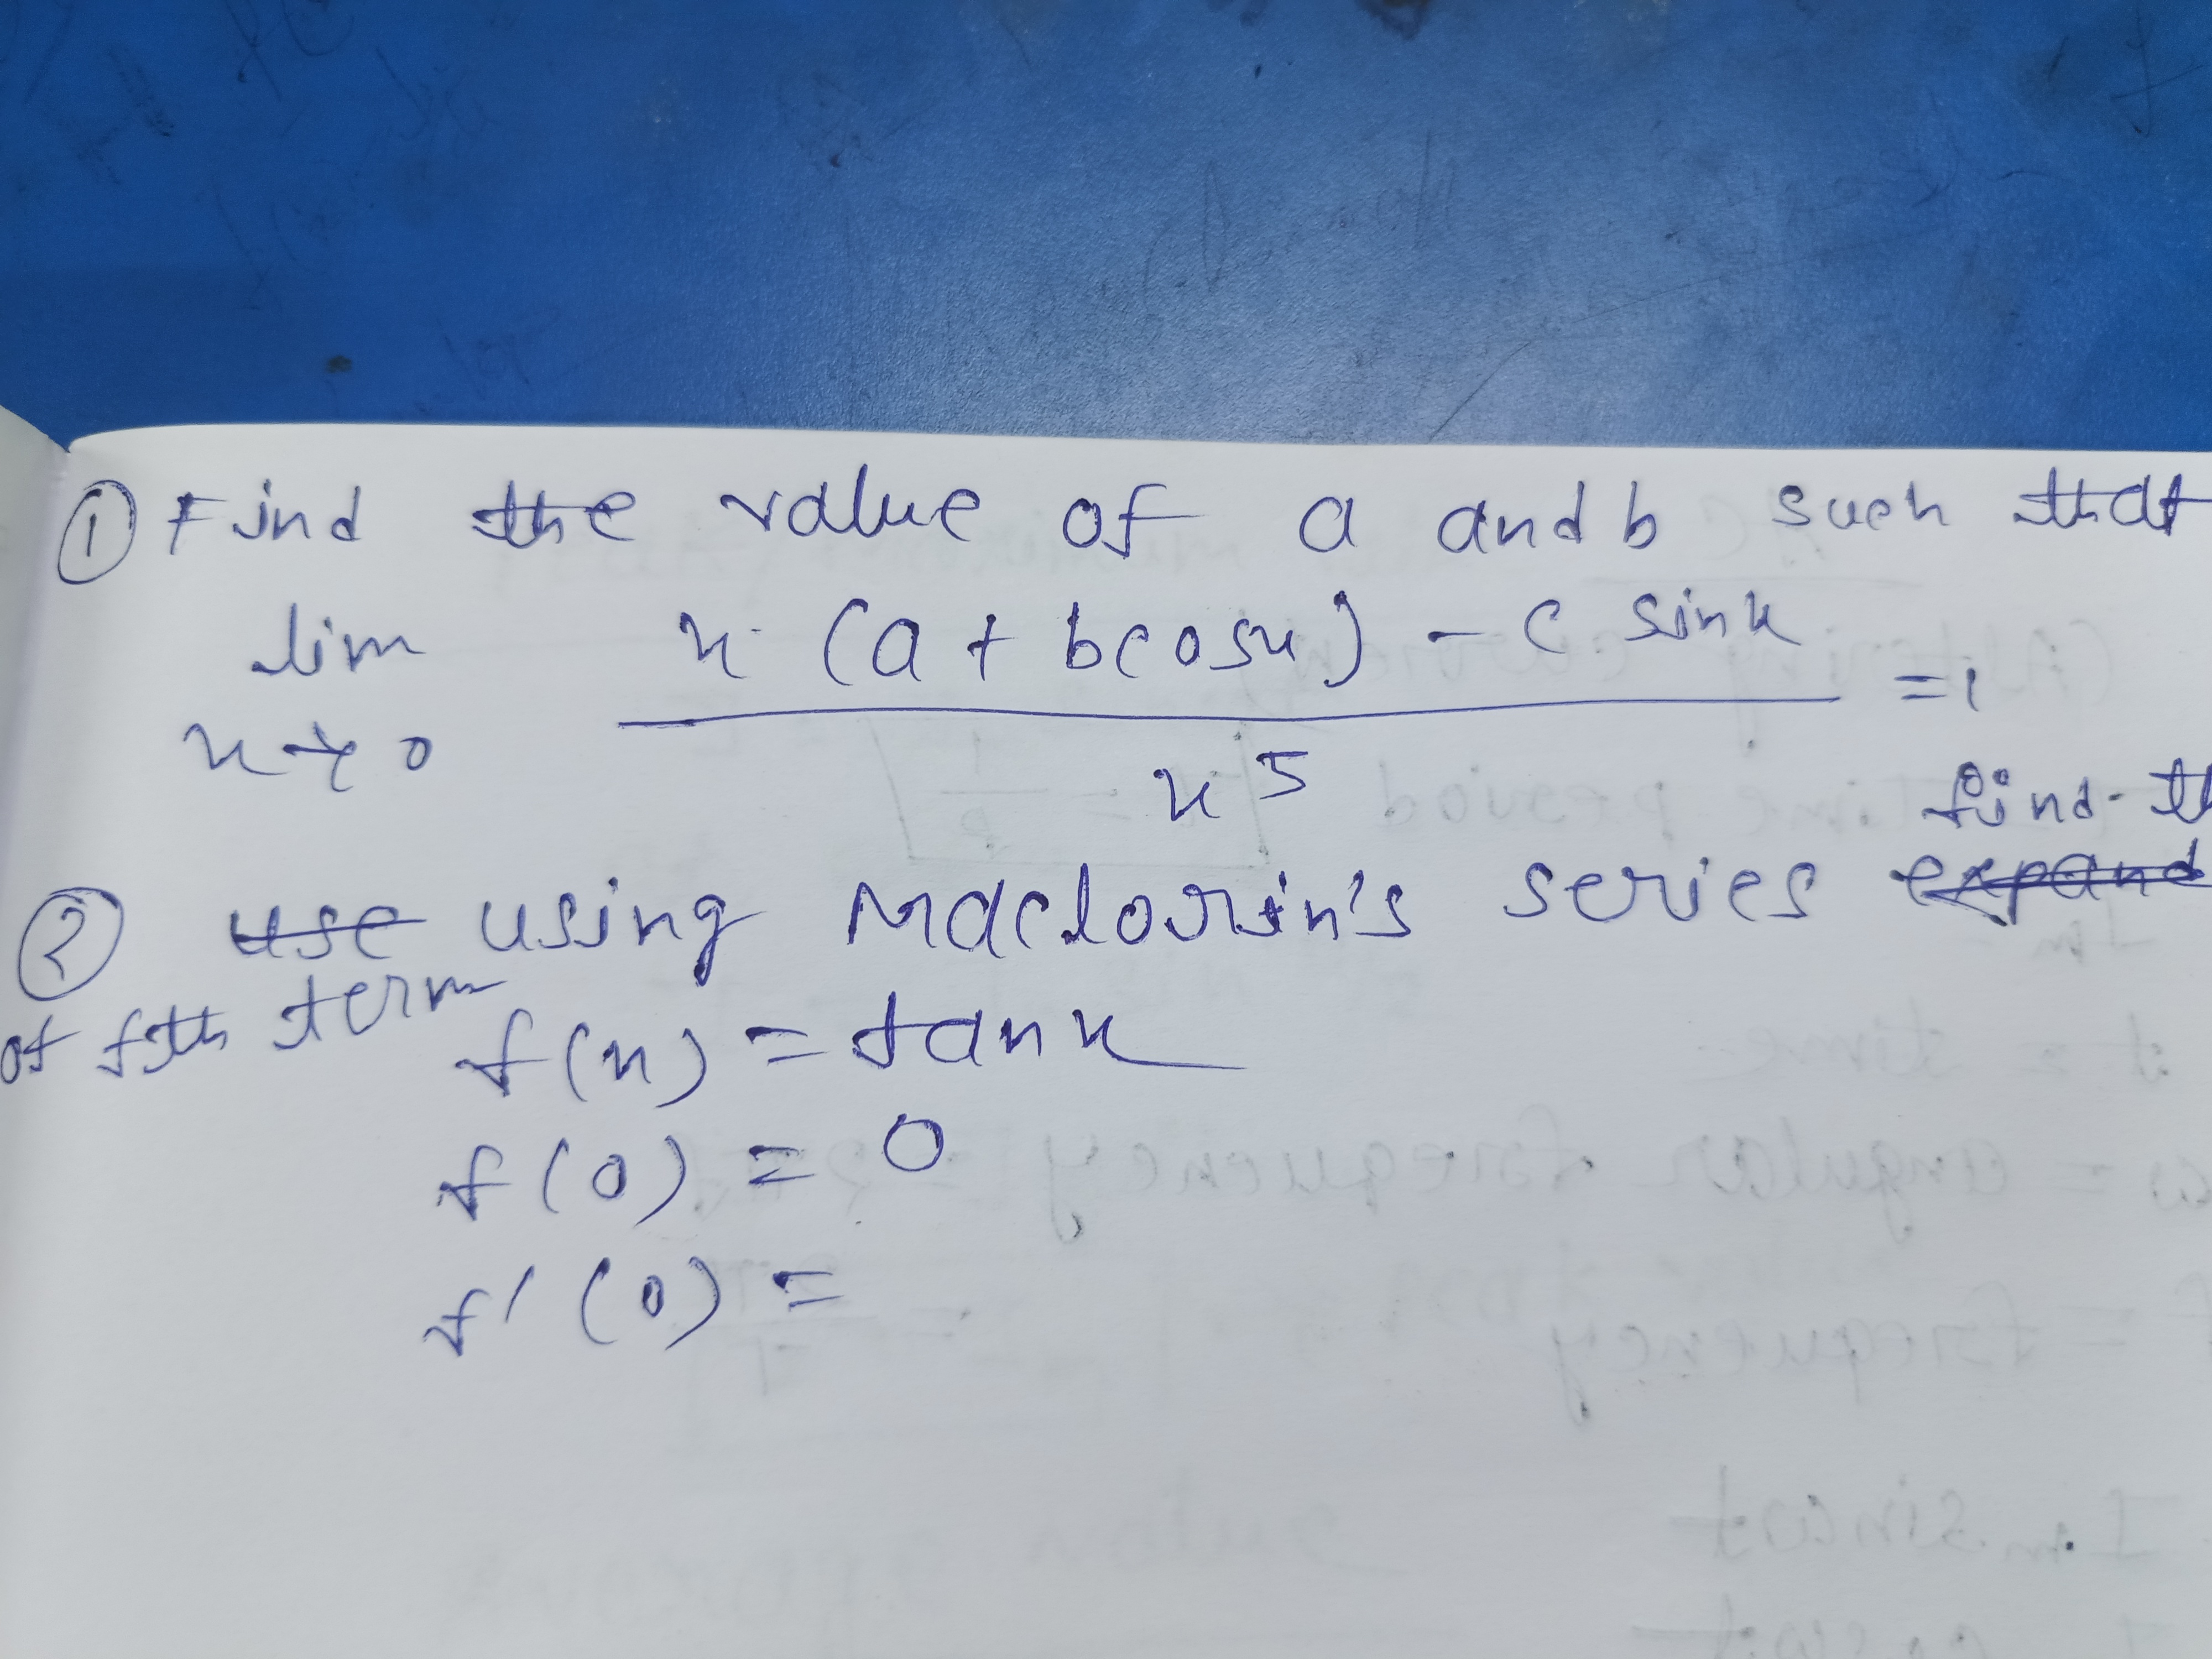 ① Find the value of a and b such that
lim x (a + b cosx) - c sinx = 1
x→0 x^5
find
② use using Maclaurin's series expand
of fifth term
f(x) = tanx
f(0) = 0
f'(0) =